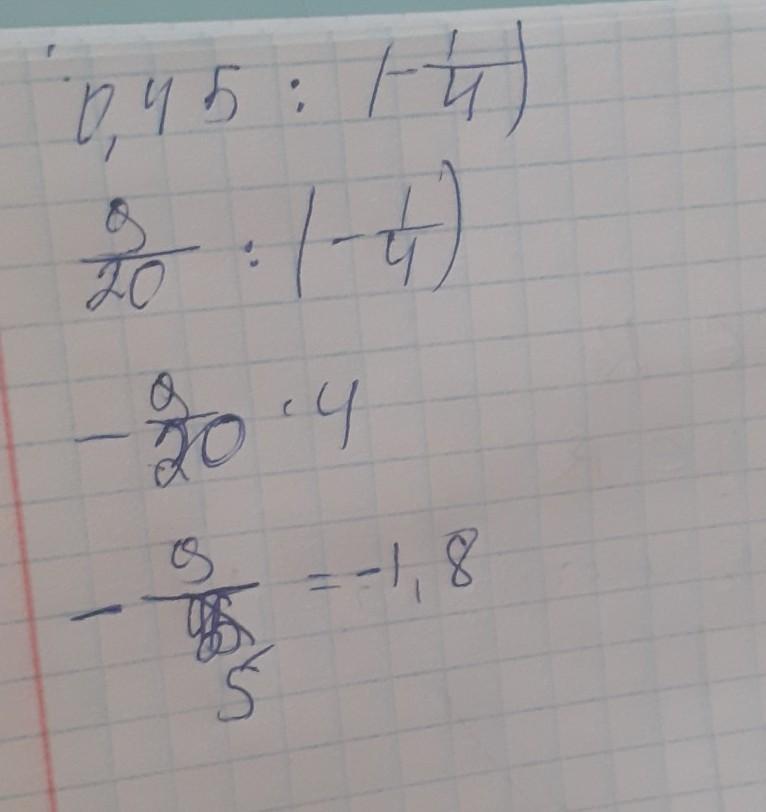 0,45 : (-1/4)
9/20 : (-1/4)
-9/20 · 4
-9/5 = -1,8